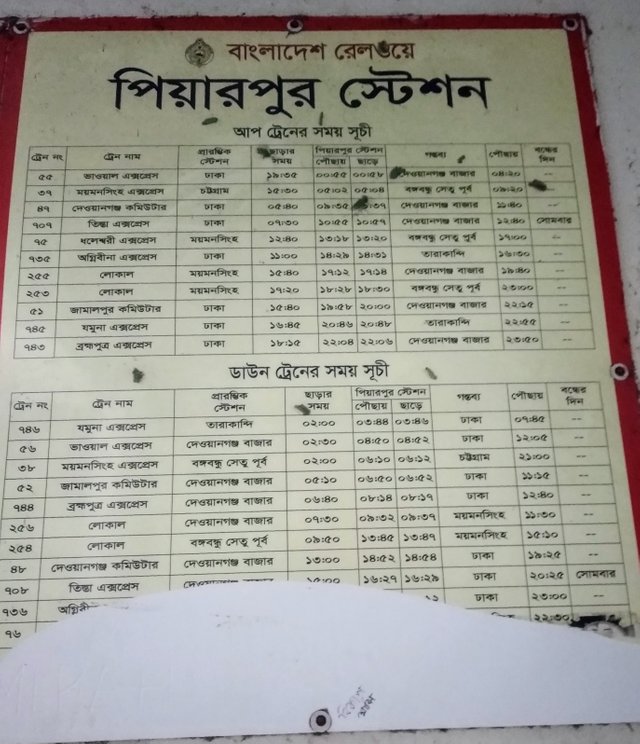 বাংলাদেশ রেলওয়ে
পিয়ারপুর স্টেশন
আপ ট্রেনের সময় সূচী
ট্রেন নং ট্রেন নাম প্রারম্ভিক স্টেশন ছাড়ার সময় পিয়ারপুর স্টেশন পৌছায় ছাড়ে গন্তব্য পৌছায় বন্ধের দিন
৫৫ ভাওয়াল এক্সপ্রেস ঢাকা ১৯:৩৫ ০০:৫৫ ০০:৫৮ দেওয়ানগঞ্জ বাজার ০৪:২০ --
৩৭ ময়মনসিংহ এক্সপ্রেস চট্টগ্রাম ১৫:৩০ ০৫:০২ ০৫:০৪ বঙ্গবন্ধু সেতু পূর্ব ০৯:২০
৪৭ দেওয়ানগঞ্জ কমিউটার ঢাকা ০৫:৪০ ০৯:৩৫ দেওয়ানগঞ্জ বাজার ১১:৪০ --
৭০৭ তিস্তা এক্সপ্রেস ঢাকা ০৭:৩০ ১০:৫৫ ১০:৫৭ দেওয়ানগঞ্জ বাজার ১২:৪০ সোমবার
৭৫ ধলেশ্বরী এক্সপ্রেস ময়মনসিংহ ১২:৪০ ১৩:১৮ ১৩:২০ বঙ্গবন্ধু সেতু পূর্ব ১৭:০০ --
৭৩৫ অগ্নিবীনা এক্সপ্রেস ঢাকা ১১:০০ ১৪:২৯ ১৪:৩১ তারাকান্দি ১৬:৩০ --
২৫৫ লোকাল ময়মনসিংহ ১৫:৪০ ১৭:১২ ১৭:১৪ দেওয়ানগঞ্জ বাজার ১৯:৪০ --
২৫৩ লোকাল ময়মনসিংহ ১৭:২০ ১৮:২৮ ১৮:৩০ বঙ্গবন্ধু সেতু পূর্ব ২৩:০০ --
৫১ জামালপুর কমিউটার ঢাকা ১৫:৪০ ১৯:৫৮ ২০:০০ দেওয়ানগঞ্জ বাজার ২২:১৫ --
৭৪৫ যমুনা এক্সপ্রেস ঢাকা ১৬:৪৫ ২০:৪৬ ২০:৪৮ তারাকান্দি ২২:৫৫ --
৭৪৩ ব্রহ্মপুত্র এক্সপ্রেস ঢাকা ১৮:১৫ ২২:০৪ ২২:০৬ দেওয়ানগঞ্জ বাজার ২৩:৫০ --
ডাউন ট্রেনের সময় সূচী
ট্রেন নং ট্রেন নাম প্রারম্ভিক স্টেশন ছাড়ার সময় পিয়ারপুর স্টেশন পৌছায় ছাড়ে গন্তব্য পৌছায় বন্ধের দিন
৭৪৬ যমুনা এক্সপ্রেস তারাকান্দি ০২:০০ ০৩:৪৪ ০৩:৪৬ ঢাকা ০৭:৪৫ --
৫৬ ভাওয়াল এক্সপ্রেস দেওয়ানগঞ্জ বাজার ০২:৩০ ০৪:৫০ ০৪:৫২ ঢাকা ১২:০৫ --
৩৮ ময়মনসিংহ এক্সপ্রেস বঙ্গবন্ধু সেতু পূর্ব ০২:০০ ০৬:১০ ০৬:১২ চট্টগ্রাম ২১:০০ --
৫২ জামালপুর কমিউটার দেওয়ানগঞ্জ বাজার ০৫:১০ ০৬:৫০ ০৬:৫২ ঢাকা ১১:১৫ --
৭৪৪ ব্রহ্মপুত্র এক্সপ্রেস দেওয়ানগঞ্জ বাজার ০৬:৪০ ০৮:১৪ ০৮:১৭ ঢাকা ১২:৪০ --
২৫৬ লোকাল দেওয়ানগঞ্জ বাজার ০৭:৩০ ০৯:৩২ ০৯:৩৭ ময়মনসিংহ ১১:৩০ --
২৫৪ লোকাল বঙ্গবন্ধু সেতু পূর্ব ০৯:৫০ ১৩:৪৫ ১৩:৪৭ ময়মনসিংহ ১৫:১০ --
৪৮ দেওয়ানগঞ্জ কমিউটার দেওয়ানগঞ্জ বাজার ১৩:০০ ১৪:৫২ ১৪:৫৪ ঢাকা ১৯:২৫ --
৭০৮ তিস্তা এক্সপ্রেস ১৫:০০ ১৬:২৭ ১৬:২৯ ঢাকা ২০:২৫ সোমবার
৭৩৬ ঢাকা ২৩:০০ --
৭৬ ২২:৩০